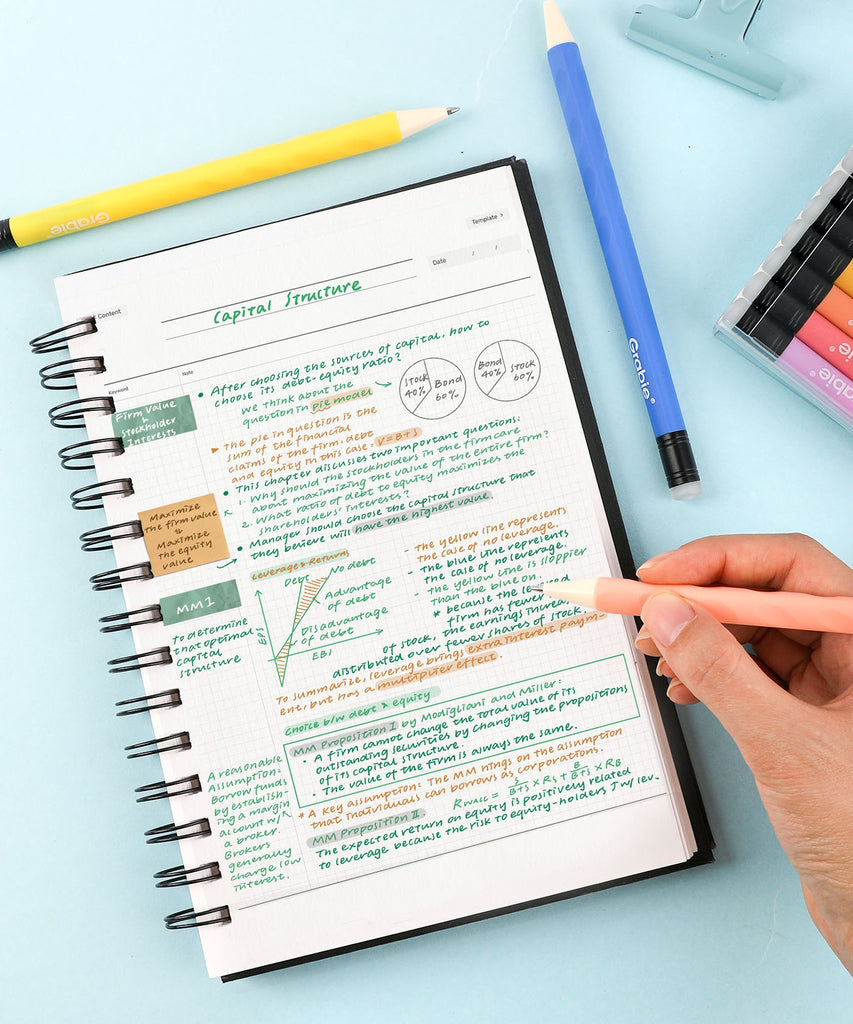 Grabie®
Grabie®
Grabie®
Template >
Date / /
Content
Capital Structure
Keyword
Note
Firm Value
&
Stockholder
Interests
• After choosing the sources of capital, how to
choose its debt-equity ratio?
We think about the
question in pie model
Stock 40%
Bond 60%
Bond 40%
Stock 60%
▸ The pie in question is the
sum of the financial
claims of the firm, debt
and equity in this case: V=B+S
• This chapter discusses two important questions:
1. Why should the stockholders in the firm care
about maximizing the value of the entire firm?
2. What ratio of debt to equity maximizes the
shareholders' interests?
• Manager should choose the capital structure that
they believe will have the highest value.
Maximize
the firm value
Maximize
the equity
value
Leverage & Returns
Debt
No debt
Advantage
of debt
Disadvantage
of debt
EPS
EBI
- The yellow line represents
the case of no leverage.
- The blue line represents
the case of no leverage.
- The yellow line is sloppier
than the blue on
* because the le
firm has fewer
of stock, the earnings increa
distributed over fewer shares of stock.
MM1
To determine
that optimal
capital
structure
To summarize, leverage brings extra interest paym-
ent, but has a multiplier effect.
Choice b/w debt & equity
MM Proposition I by Modigliani and Miller:
• A firm cannot change the total value of its
outstanding securities by changing the propositions
of its capital structure.
• The value of the firm is always the same.
* A key assumption: The MM hings on the assumption
that individuals can borrows as corporations.
MM Proposition II.
RWACC = S/B+S × RS + B/B+S × RB
The expected return on equity is positively related
to leverage because the risk to equity-holders ↑ w/ lev-
A reasonable
Assumption:
Borrow funds
by establish-
ing a margin
account w/
a broker.
Brokers
generally
charge low
interest.